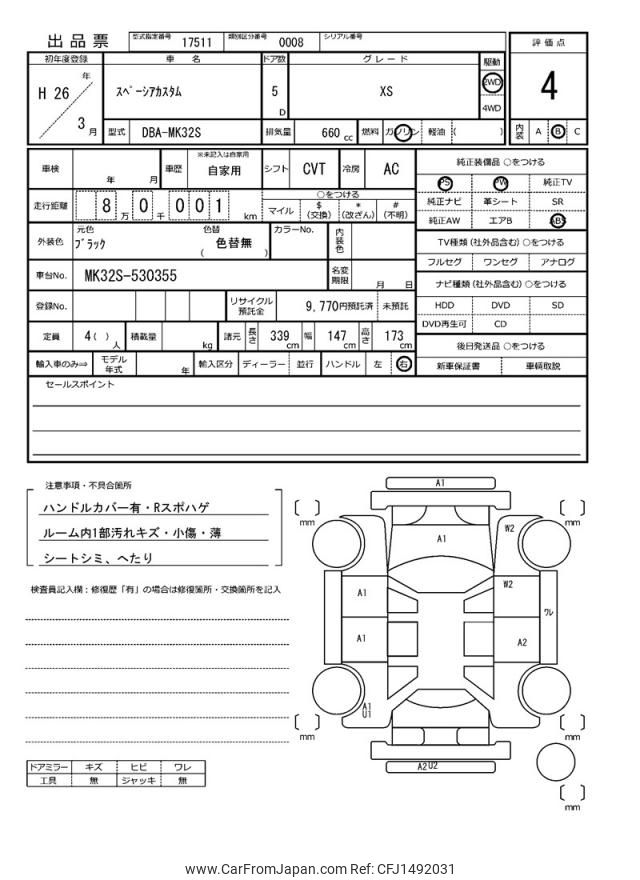 出品票 型式指定番号 17511 類別区分番号 0008 シリアル番号
評価点
4
内装 A B C
初年度登録 車名 ドア数 グレード 駆動
H 26 年 3 月 スペーシアカスタム 5 D XS 2WD 4WD
型式 DBA-MK32S 排気量 660 cc 燃料 ガソリン 軽油 ( )
車検 年 月 車歴 ※未記入は自家用 自家用 シフト CVT 冷房 AC
走行距離 8 万 0 千 0 0 1 km
○をつける
マイル $ (交換) * (改ざん) # (不明)
外装色 元色 ブラック 色替 ( 色替無 ) カラーNo. 内装色
車台No. MK32S-530355 名変期限 月 日
登録No. リサイクル預託金 9,770円預託済 未預託
定員 4( ) 人 積載量 kg 諸元 長さ 339 cm 幅 147 cm 高さ 173 cm
輸入車のみ⇒ モデル年式 年 輸入区分 ディーラー 並行 ハンドル 左 右
純正装備品 ○をつける
PS PW 純正TV
純正ナビ 革シート SR
純正AW エアB ABS
TV種類(社外品含む)○をつける
フルセグ ワンセグ アナログ
ナビ種類(社外品含む)○をつける
HDD DVD SD
DVD再生可 CD
後日発送品 ○をつける
新車保証書 車輌取説
セールスポイント
注意事項・不具合箇所
ハンドルカバー有・Rスポハゲ
ルーム内1部汚れキズ・小傷・薄
シートシミ、へたり
検査員記入欄:修復歴「有」の場合は修復箇所・交換箇所を記入
ドアミラー キズ ヒビ ワレ
工具 無 ジャッキ 無
A1
mm
mm
A1
W2
A1
W2
A1
A2
ワレ
A1
U1
mm
mm
A2U2
mm
www.CarFromJapan.com Ref: CFJ1492031